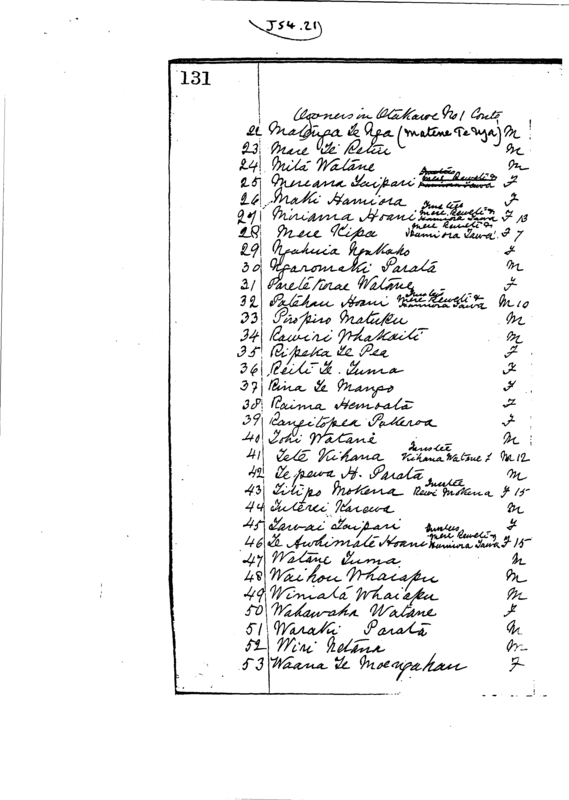 J54.21
131
Owners in Otakawe No 1 Contd
22 Matenga Te Nga (Matene Te Nga) M
23 Mare Te Retiu M
24 Mita Watane M
25 Mereana Taipari F
26 Maki Hamiora F
27 Miriama Hoani Trustees Mere Reweti & Hamiora Tawa F 13
28 Mere Kipa Mere Reweti & Hamiora Tawa F 7
29 Ngahuia Ngakaho F
30 Ngaromaki Parata M
31 Paretekorae Watane F
32 Patehau Hoani Trustees Mere Reweti & Hamiora Tawa M 10
33 Piropiro Matuku M
34 Rawiri Whakaiti M
35 Ripeka Te Pea F
36 Reiti Te Tuma F
37 Rina Te Mango F
38 Raima Hemoata F
39 Rangitopea Pakeroa F
40 Toki Watane M
41 Tete Kihana Trustee Kihana Watane M 12
42 Te pewa H. Parata M
43 Titipo Mokena Trustee Rewi Mokena F 15
44 Tuterei Karewa M
45 Tawai Taipari F
46 Te Awhimate Hoani Trustees Mere Reweti & Hamiora Tawa F 15
47 Watane Tuma M
48 Waihou Whaiapu M
49 Wimiata Whaiapu M
50 Wakawaka Watane F
51 Waraki Parata M
52 Wiri Netana M
53 Waana Te Moengahau F